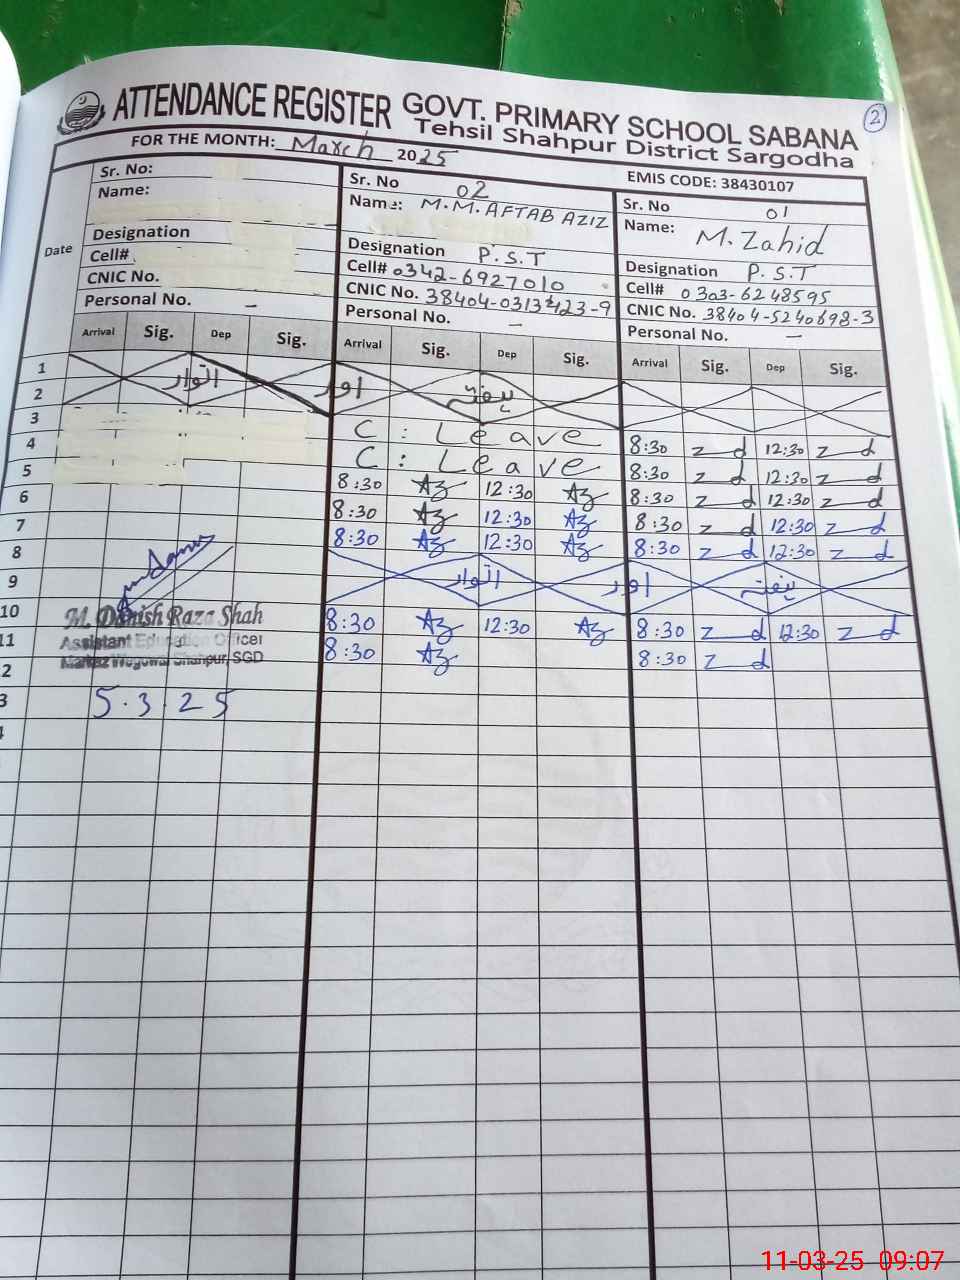 ATTENDANCE REGISTER GOVT. PRIMARY SCHOOL SABANA
2
Tehsil Shahpur District Sargodha
FOR THE MONTH: March 2025
EMIS CODE: 38430107
Date
Sr. No:
Name:
Designation
Cell#
CNIC No.
Personal No. –
Sr. No 02
Name: M.M. AFTAB AZIZ
Designation P.S.T
Cell# 0342-6927010
CNIC No. 38404-0313423-9
Personal No. –
Sr. No 01
Name: M. Zahid
Designation P.S.T
Cell# 0303-6248595
CNIC No. 38404-5240698-3
Personal No. –
Arrival Sig. Dep Sig. Arrival Sig. Dep Sig. Arrival Sig. Dep Sig.
1
2 اتوار اور ہفتہ
3 C: Leave 8:30 z d 12:30 z d
4 C: Leave 8:30 z d 12:30 z d
5 8:30 Az 12:30 Az 8:30 z d 12:30 z d
6 8:30 Az 12:30 Az 8:30 z d 12:30 z d
7 8:30 Az 12:30 Az 8:30 z d 12:30 z d
8
9 اتوار اور ہفتہ
10 8:30 Az 12:30 Az 8:30 z d 12:30 z d
11 8:30 Az 8:30 z d
2
3
M. Danish Raza Shah
Assistant Education Officer
Markaz Wegowal Shahpur, SGD
5.3.25
11-03-25 09:07